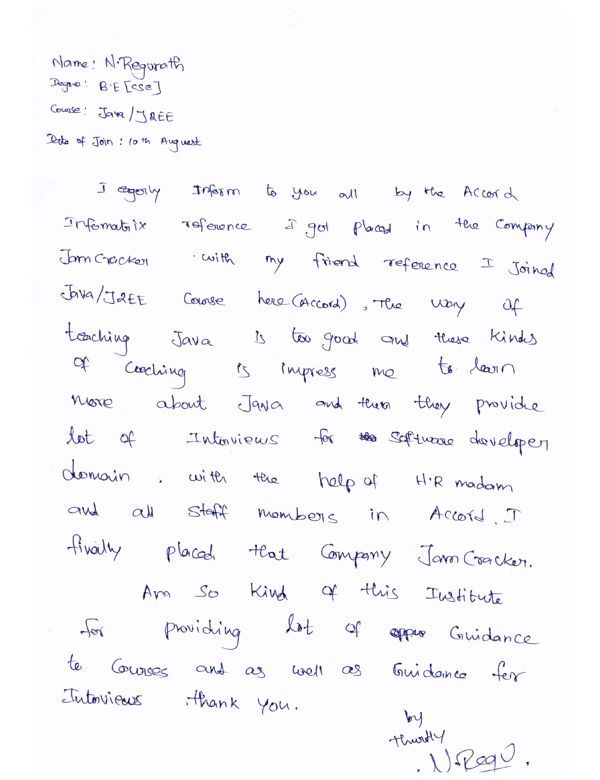 Name: N.Regunath
Degree: B.E [CSE]
Course: Java/J2EE
Date of Join : 10th Auguest
I egerly Inform to you all by the Accord
Infomatrix reference I got placed in the Company
JamCracker. with my friend reference I joined
Java/J2EE Course here (Accord), The way of
teaching Java is too good and these kinds
of Coaching is impress me to learn
more about Java and then they provide
lot of Interviews for Software developer
domain. with the help of H.R madam
and all Staff members in Accord. I
finally placed that Company JamCracker.
Am So Kind of this Institute
for providing lot of Guidance
to Courses and as well as Guidance for
Interviews. thank you.
by
N.Regu.